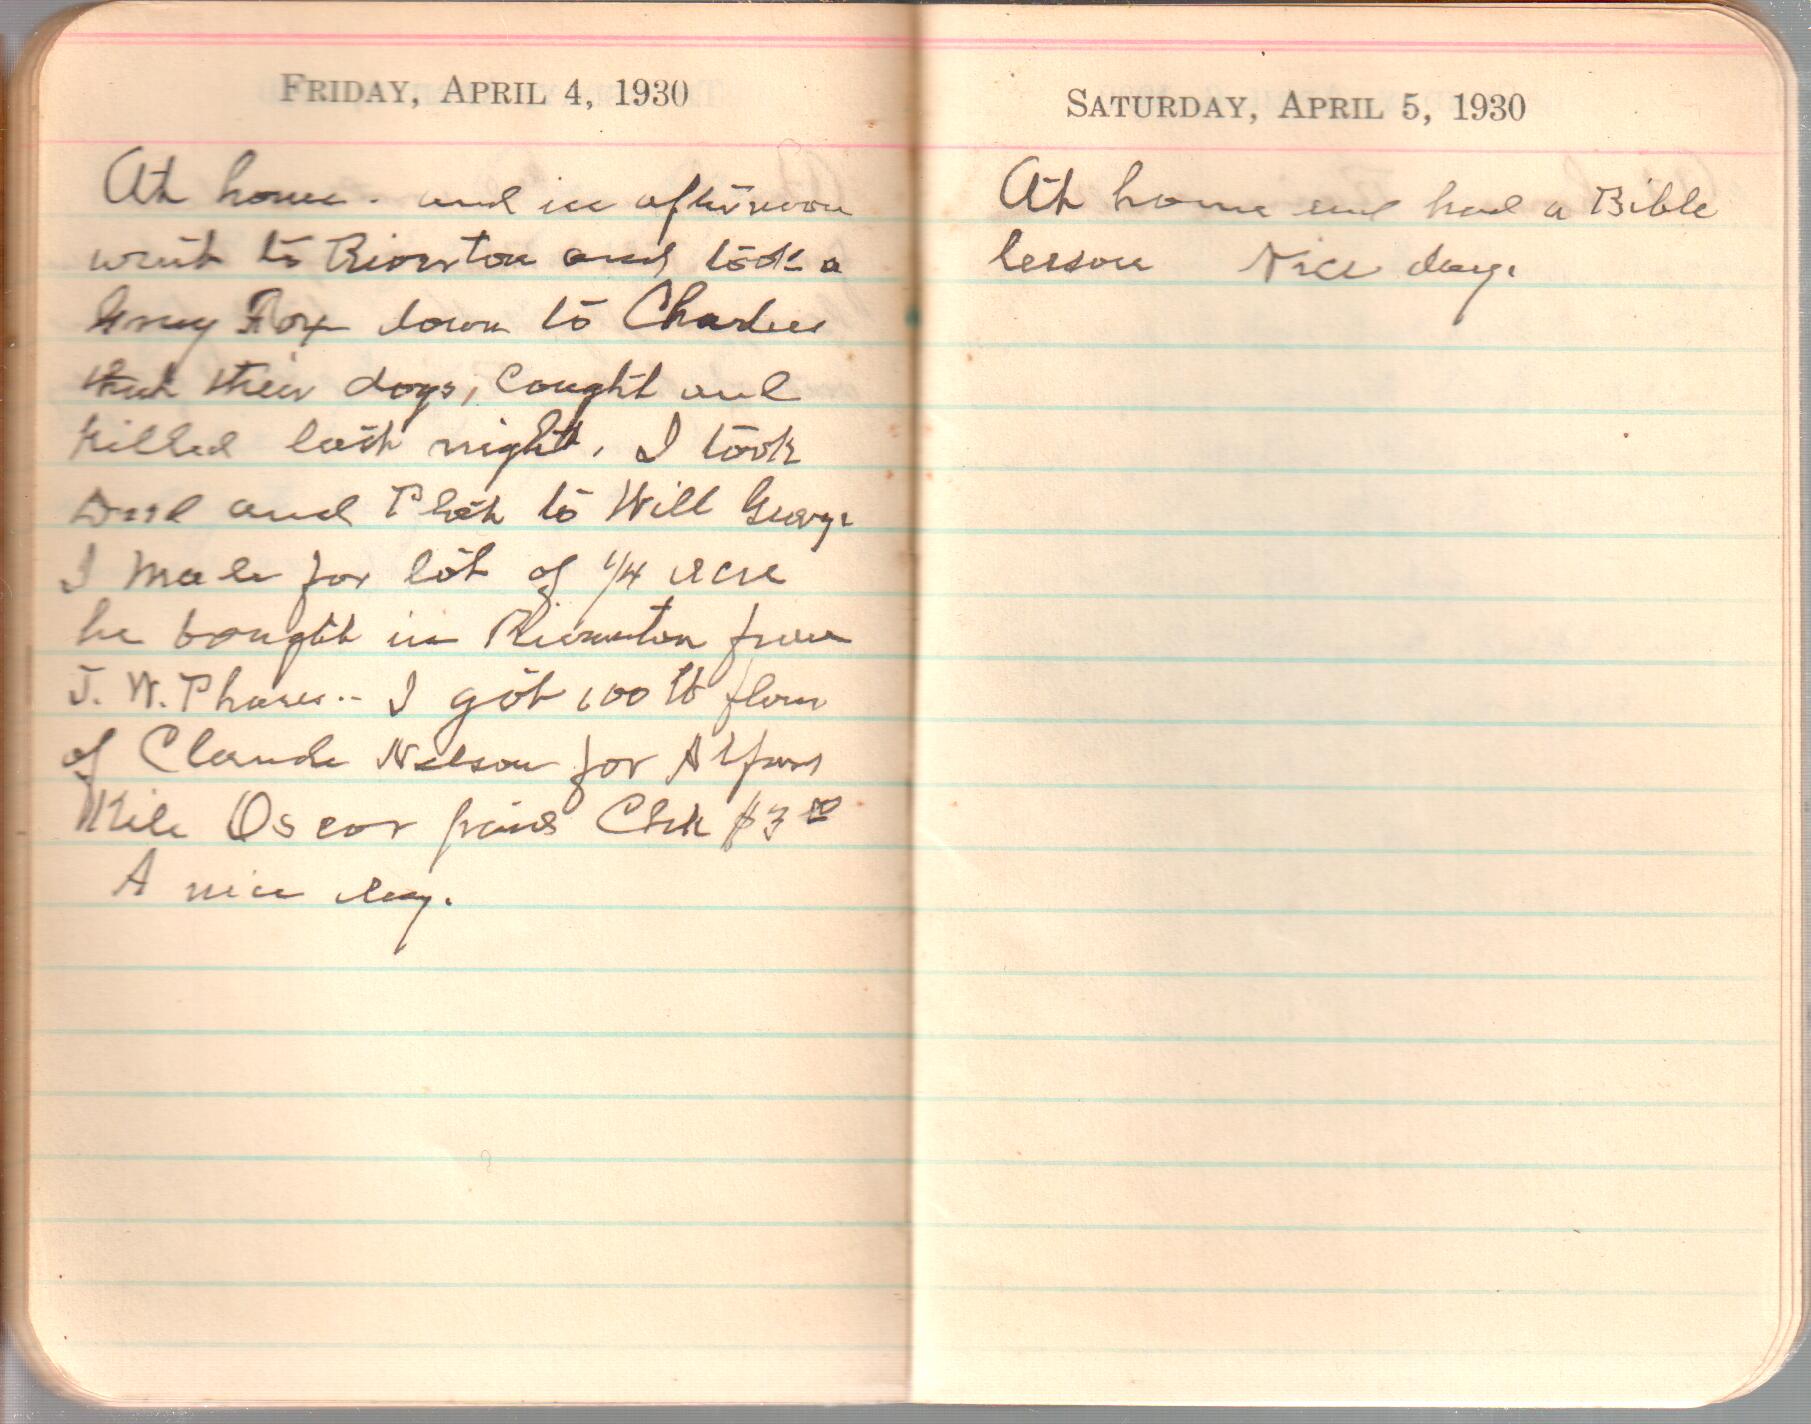 FRIDAY, APRIL 4, 1930
At home. and in afternoon
went to Riverton and took a
Grey Fox down to Charlies
that their dogs, cought and
killed last night. I took
Deed and Plat to Will George
I made for lot of 1/4 acre
he bought in Riverton from
J. W. Phares.. I got 100 lb flour
of Claude Nelson for
Oscar paid Chk $3.00
A nice day.
SATURDAY, APRIL 5, 1930
At home and had a Bible
lesson Nice day.